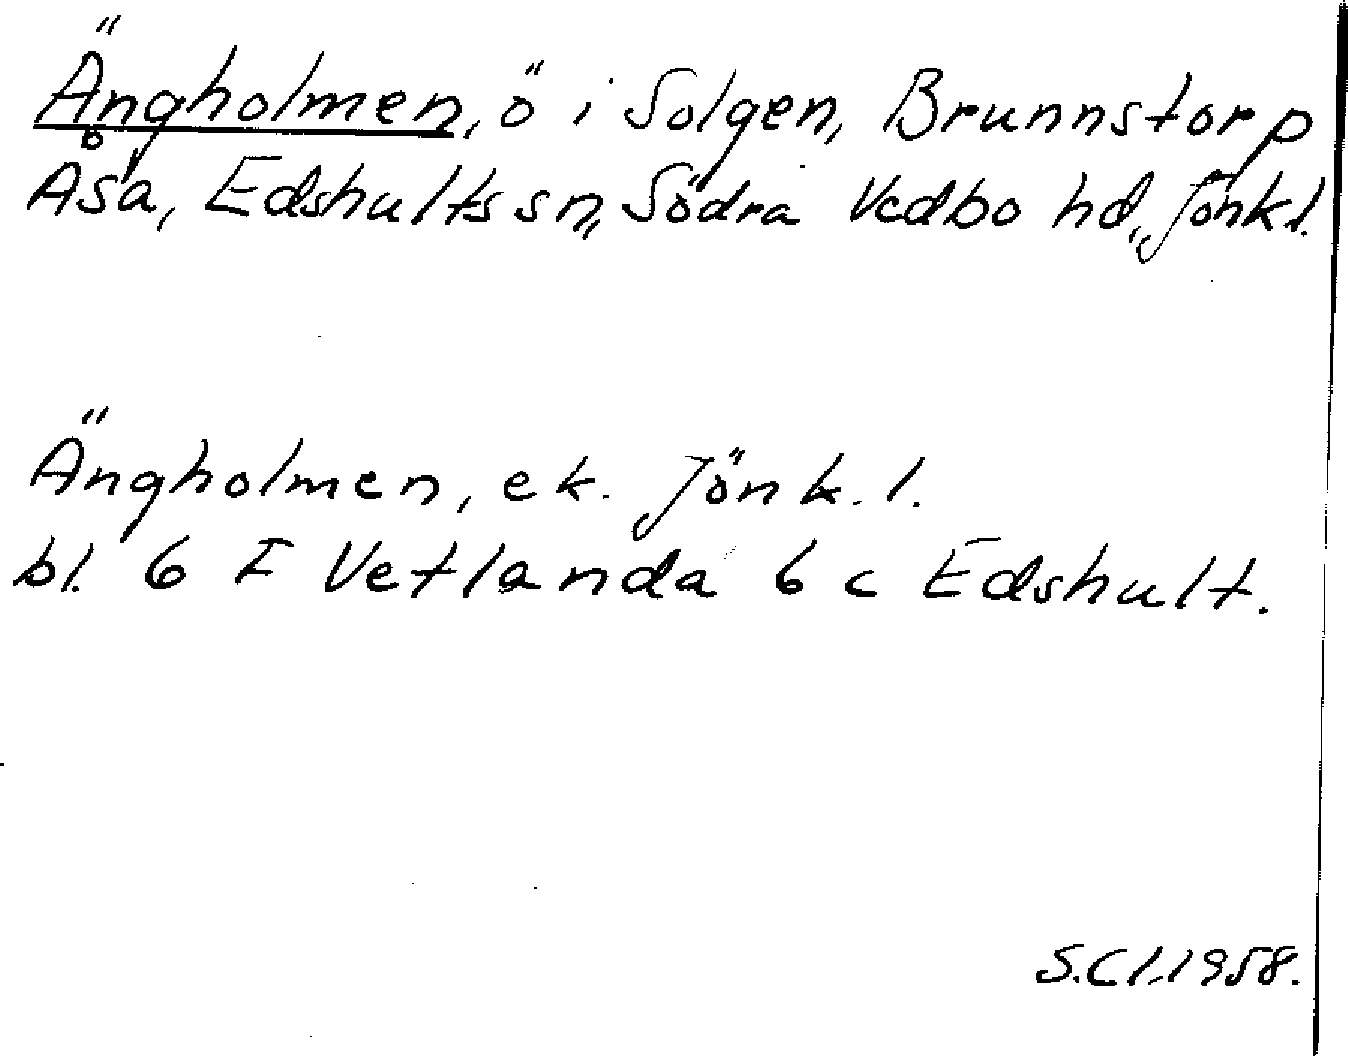 Ängholmen, ö i Solgen, Brunnstorp
Åsa, Edshults sn, Södra Vedbo hd, Jönk.l.
Ängholmen, ek. Jönk. l.
bl. 6 F Vetlanda 6 c Edshult.
S.Cl.1958.